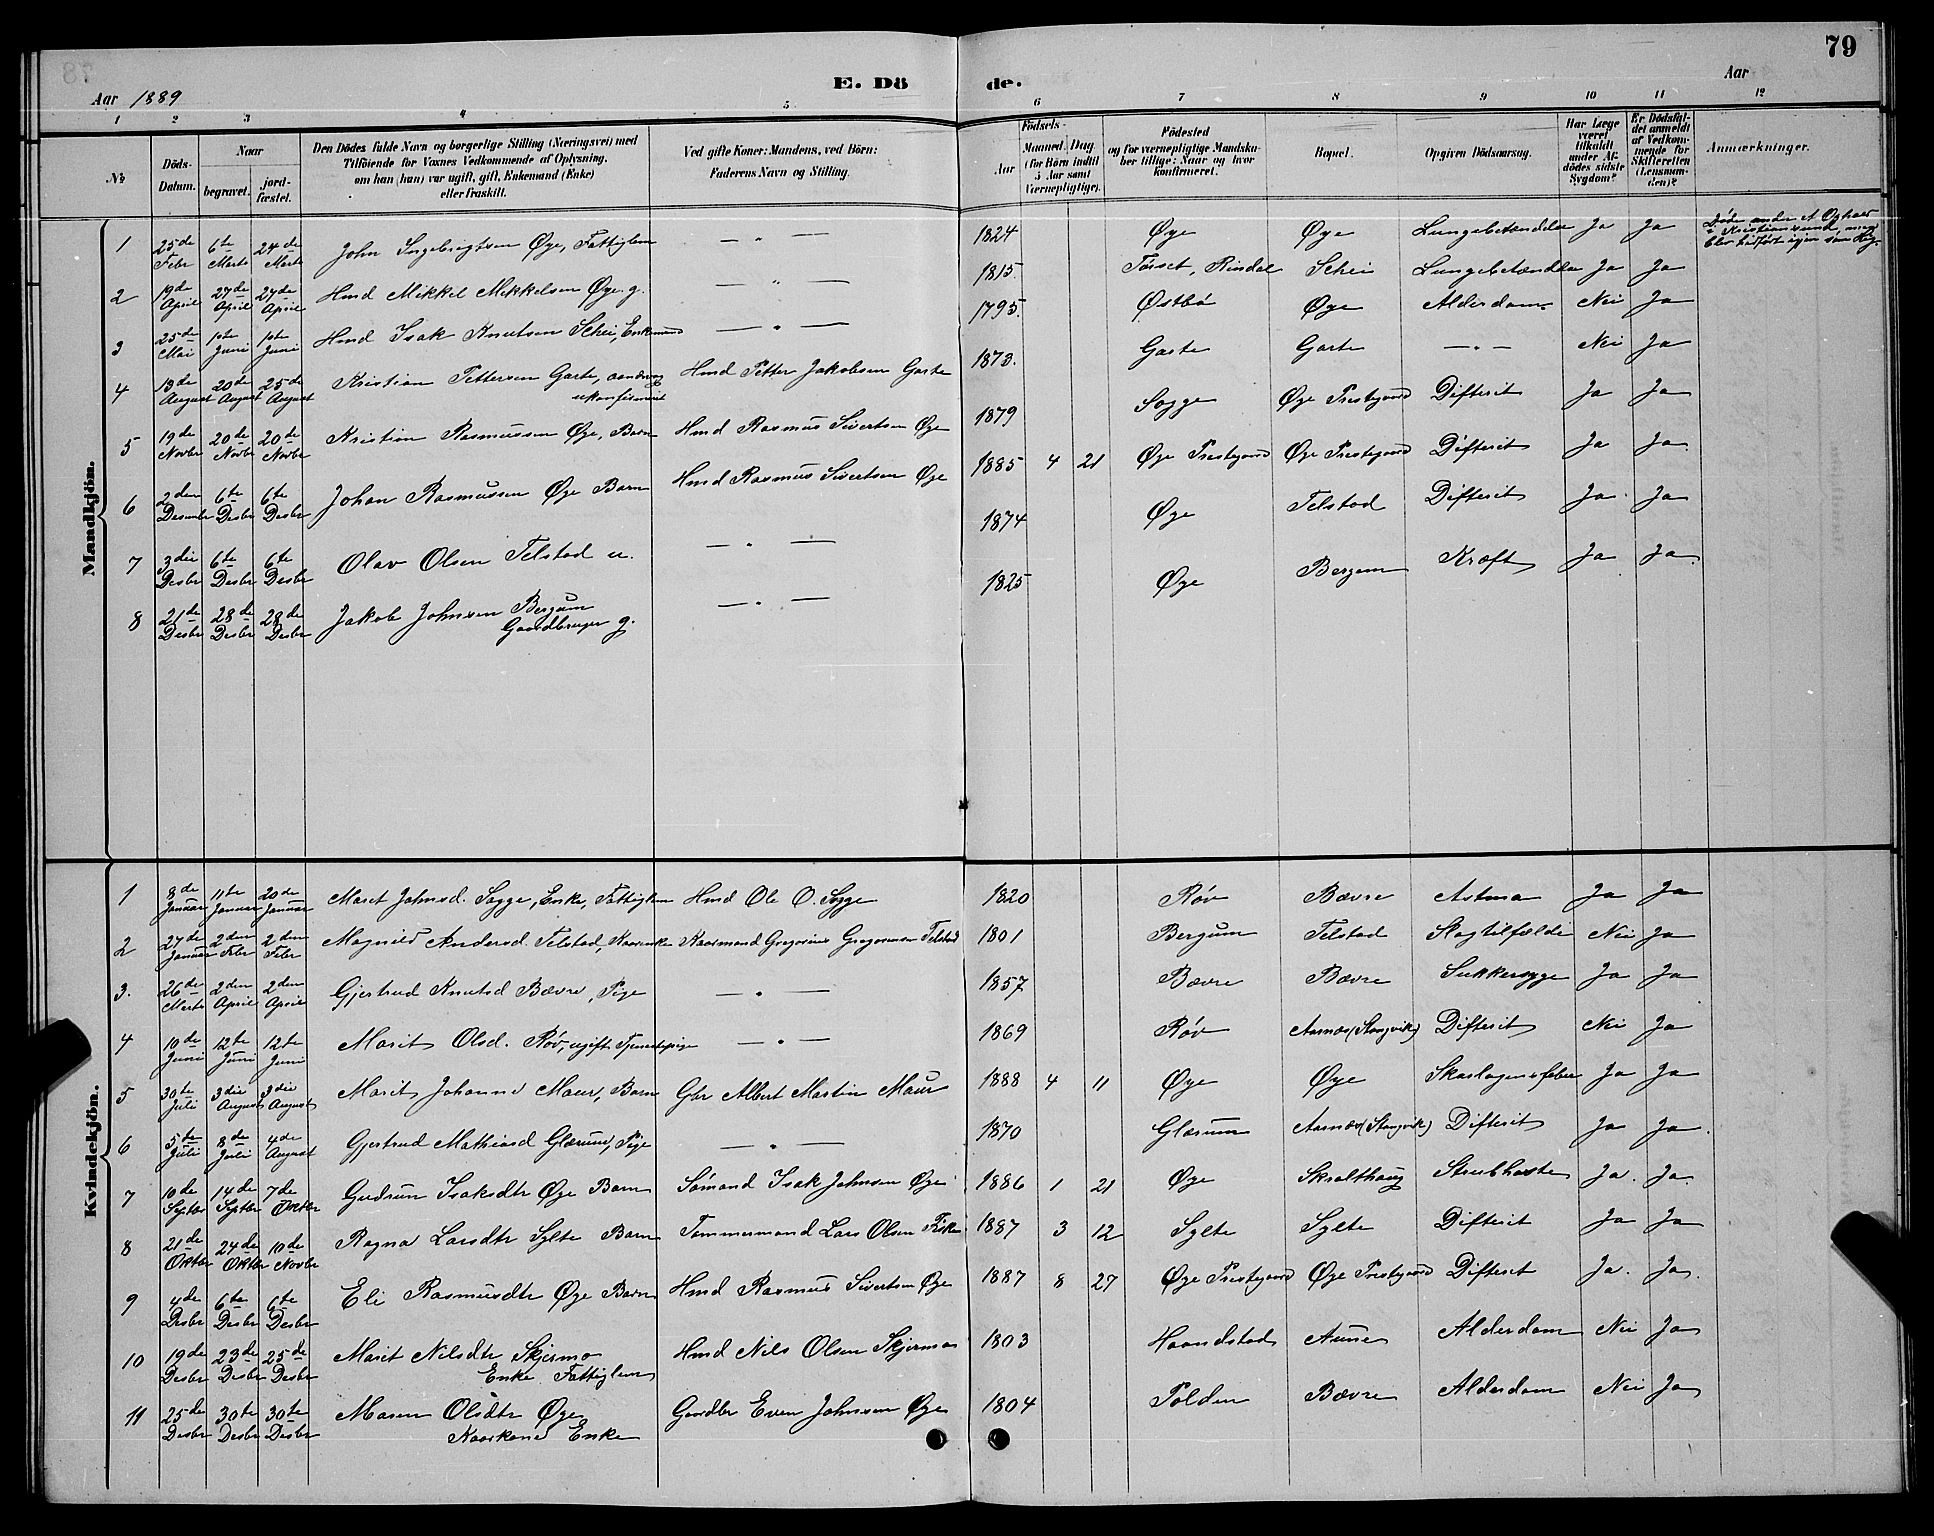 79
E. Dö de.
Aar 1889
Aar
1 2 3 4 5 6 7 8 9 10 11 12
№
Döds-Datum.
Naar
begravet.
jord-fæstet.
Den Dödes fulde Navn og borgerlige Stilling (Næringsvei) med
Tilföiende for Voxnes Vedkommende af Oplysning,
om han (hun) var ugift, gift, Enkemand (Enke)
eller fraskilt.
Ved gifte Koner: Mandens, ved Börn:
Faderens Navn og Stilling.
Födsels-
Aar
Maaned. Dag
(for Börn indtil
5 Aar samt
Værnepligtige).
Födested
og for værnepligtige Mandsku-
ber tillige: Naar og hvor
konfirmeret.
Bopæl.
Opgiven Dödsaarsag.
Har Læge
været
tilkaldt
under Af-
dödes sidste
Sygdom?
Er Dödsfal-
det anmeldt
af Vedkom-
mende for
Skifteretten
(Lensman-
den)?
Anmærkninger.
Mandkjön.
1 25de Febr 6te Marts 24de Marts John Ingebrigtsen Øye, Fattiglem — " — 1824 Øye Øye Lungebetændelse Ja Ja Døde under et Ophold i Kristianssund, men blev hidført igjen som Lig.
2 19de April 27de April 27de April Hmd Mikkel Mikkelsen Øye. g. — " — 1815. Tørset, Rindal Schei Lungebetændelse Ja Ja
3 25de Mai 1ste Juni 1ste Juni Hmd Isak Knutsen Schei, Enkemand — " — 1795. Østbø Øye Alderdom Nei Ja
4 13de August 20de August 25de August Kristian Pettersen Garte, aandsvag ukonfirmeret Hmd Petter Jakobsen Garte 1873. Garte Garte — " — Nei Ja
5 19de Novbr 20de Novbr 20de Novbr Kristian Rasmussen Øye, Barn Hmd Rasmus Sivertsen Øye 1879 Sogge Øye Prestegaard Difterit Ja Ja
6 2den Desember 6te Desbr 6te Desbr Johan Rasmussen Øye Barn Hmd Rasmus Sivertsen Øye 1885 4 21 Øye Prestegaard Øye Prestegaard Difterit Ja Ja
7 3die Desbr 6te Desbr 6te Desbr Olav Olsen Telstad u. — " — 1874 Øye Telstad Difterit Ja Ja
8 21de Desbr 28de Desbr 28de Desbr Jakob Johnsen Bergum Gaardbruger g. — " — 1825 Øye Bergem Kræft Ja Ja
Kvindekjön.
1 8de Januar 11te Januar 20de Januar Marit Johnsd. Sogge, Enke, Fattiglem Hmd Ole O. Sogge 1820 Røv Bævre Astma Ja Ja
2 27de Januar 2den Febr 2den Febr Magnild Andersd Telstad, Kaarenke Kaarmand Gregorius Gregoriusen Telstad 1801 Bergum Telstad Slagtilfælde Nei Ja
3. 26de Marts 2den April 2den April Gjertrud Knutsd Bævre, Pige — " — 1857 Bævre Bævre Sukkersyge Ja Ja
4 10de Juni 12te Juni 12te Juni Marit Olsd. Røv, ugift Tjenestepige — " — 1869 Røv Aarnæs (Stangvik) Difterit Nei Ja
5 30te Juli 3die August 3die August Marit Johanne Maur, Barn Gbr Albert Martin Maur 1888 4 11 Øye Øye Skarlagensfeber Ja Ja
6 5te Juli 8de Juli 4de August Gjertrud Mathiasd Glærum, Pige — " — 1870 Glærum Aarnæs (Stangvik) Difterit Ja Ja
7 10de Septbr 14de Septbr 7de Oktbr Gudrun Isaksdtr Øye Barn Sømand Isak Johnsen Øye 1886 1 21 Øye Skralthaug Strubhoste Ja. Ja
8 21de Oktbr 24de Oktbr 10de Novbr Ragna Larsdtr Sylte Barn Tømmermand Lars Olsen Fiske 1887 3 12 Sylte Sylte Difterit Ja Ja
9 4de Desbr 6te Desbr 6te Desbr Eli Rasmusdtr Øye Barn Hmd Rasmus Sivertsen Øye 1887 8 27 Øye Prestegaard Øye Prestegaard Difterit Ja. Ja.
10 19de Desbr 23de Desbr 25de Desbr Marit Nilsdtr Skjermo Enke Fattiglem Hmd Nils Olsen Skjermo 1803 Haandstad Aune Alderdom Nei Ja
11 25de Desbr 30te Desbr 30te Desbr Maren Olsdtr Øye Kaarkone Enke Gaardbr Even Johnsen Øye 1804 Polden Bævre Alderdom Nei Ja